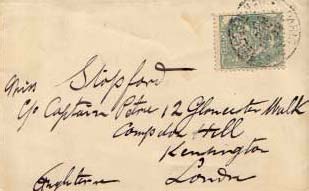 Miss Stopford
C/o Captain Petrie 12 Gloucester Walk
Campden Hill
Kensington
Angleterre London